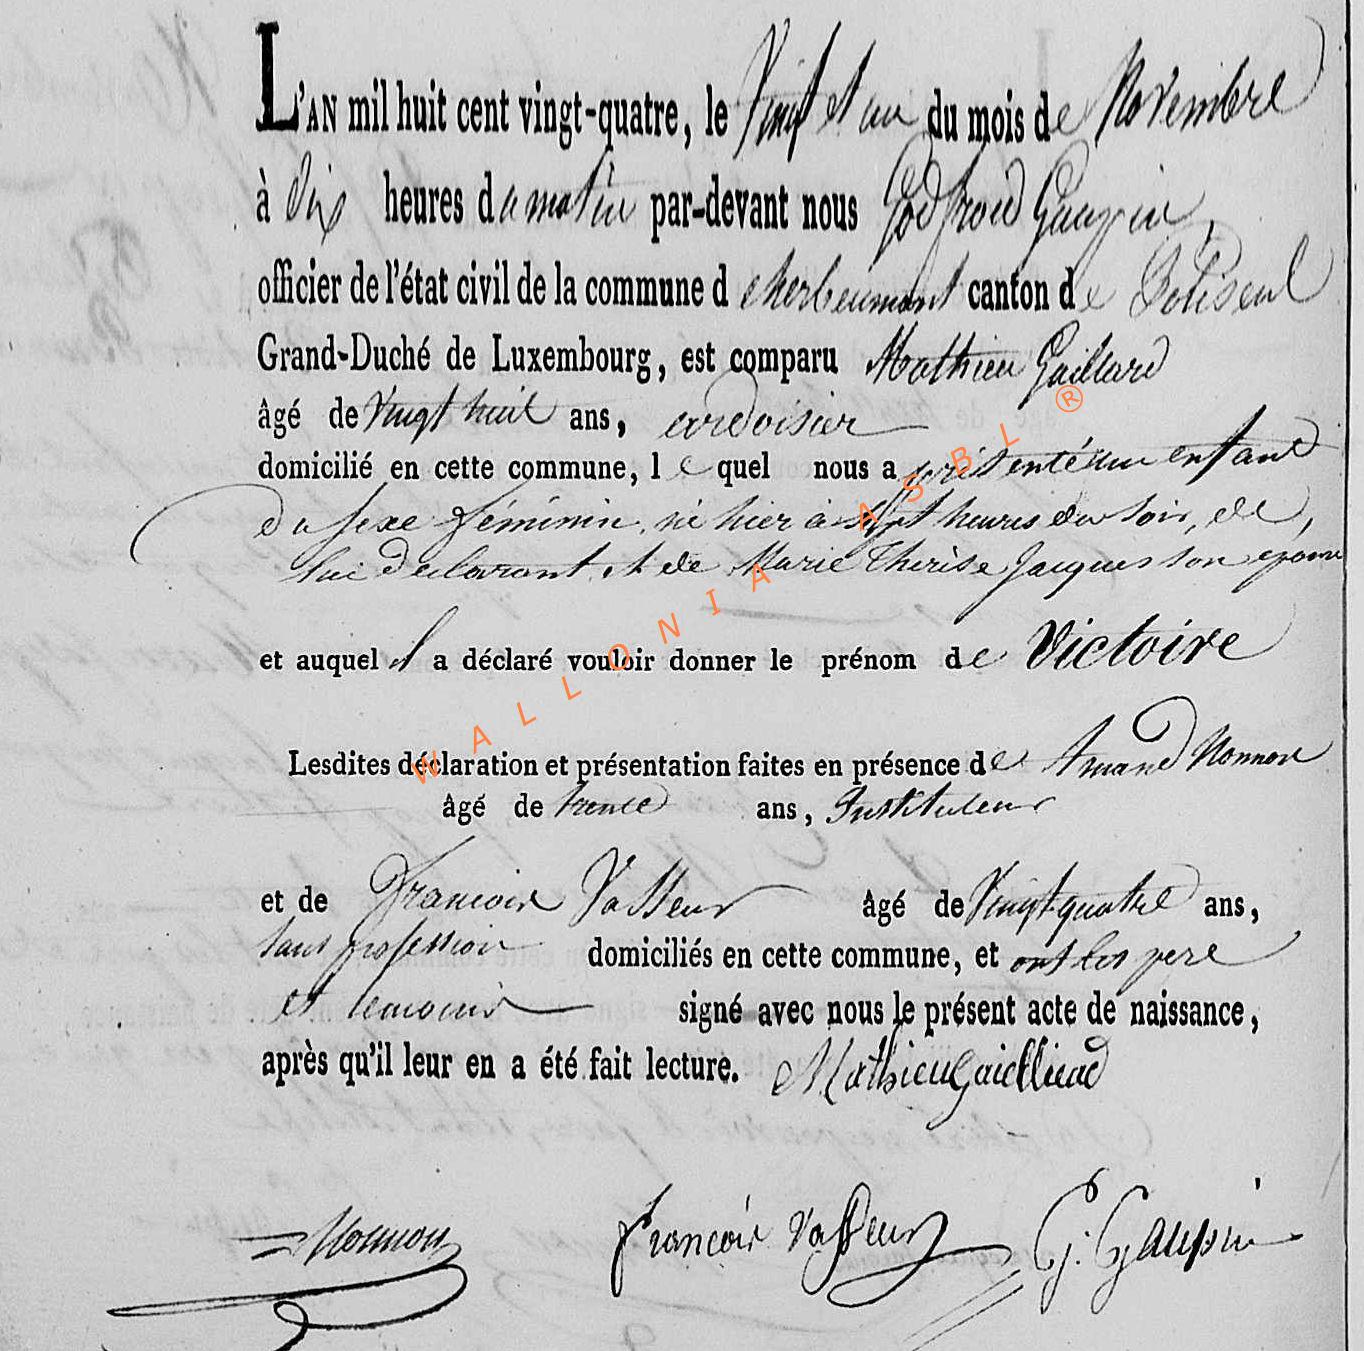 L'AN mil huit cent vingt-quatre, le Vingt et un du mois de Novembre
à dix heures du matin par-devant nous Godfroid Gaupin,
officier de l'état civil de la commune d herbeumont canton de Paliseul
Grand-Duché de Luxembourg, est comparu Mathieu Gaillard
âgé de Vingt huit ans, ardoisier
domicilié en cette commune, le quel nous a présenté un enfant
du sexe féminin, né hier à sept heures du soir, de,
lui déclarant et de Marie Thérèse Jacques son épouse
et auquel il a déclaré vouloir donner le prénom de Victoire
Lesdites déclaration et présentation faites en présence de Amand Nonnon
âgé de trente ans, Instituteur
et de François Vasseur âgé de Vingt quatre ans,
sans profession domiciliés en cette commune, et ont les pere
et temoins signé avec nous le présent acte de naissance,
après qu'il leur en a été fait lecture. Mathieu Gaielliard
Nonnon François Vasseur G. Gaupin
WALLONIA ASBL ®